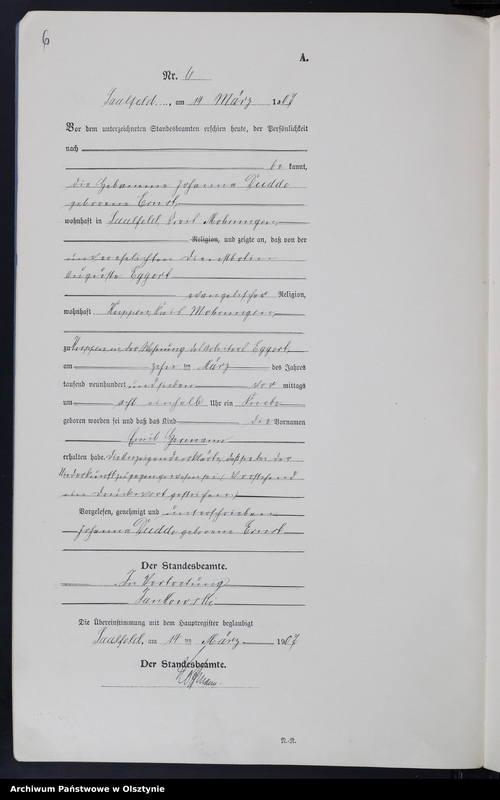 6
A.
Nr. 6
Saalfeld, am 14 März 1907
Vor dem unterzeichneten Standesbeamten erschien heute, der Persönlichkeit
nach
be kannt,
die Hebamme Johanna Duddo
geborene Ernst
wohnhaft in Saalfeld, Kreis Mohrungen,
Religion, und zeigte an, daß von der
unverehelichten Dienstbotin
Auguste Eggert
evangelischer Religion,
wohnhaft Kuppen, Kreis Mohrungen,
zu Kuppen in der Wohnung des Eggert,
am zehn ten März des Jahres
tausend neunhundert und sieben vor mittags
um acht einhalb Uhr ein Knabe
geboren worden sei und daß das Kind die Vornamen
Emil Hermann
erhalten habe. Die Anzeigende erklärte, daß sie bei der
Niederkunft zugegen gewesen sei. Vorstehend
ein Druckwort gestrichen.
Vorgelesen, genehmigt und unterschrieben
Johanna Duddo geborene Ernst
Der Standesbeamte.
In Vertretung
Jankowski
Die Übereinstimmung mit dem Hauptregister beglaubigt
Saalfeld, am 14 ten März 1907
Der Standesbeamte.
N.-N.
Archiwum Państwowe w Olsztynie